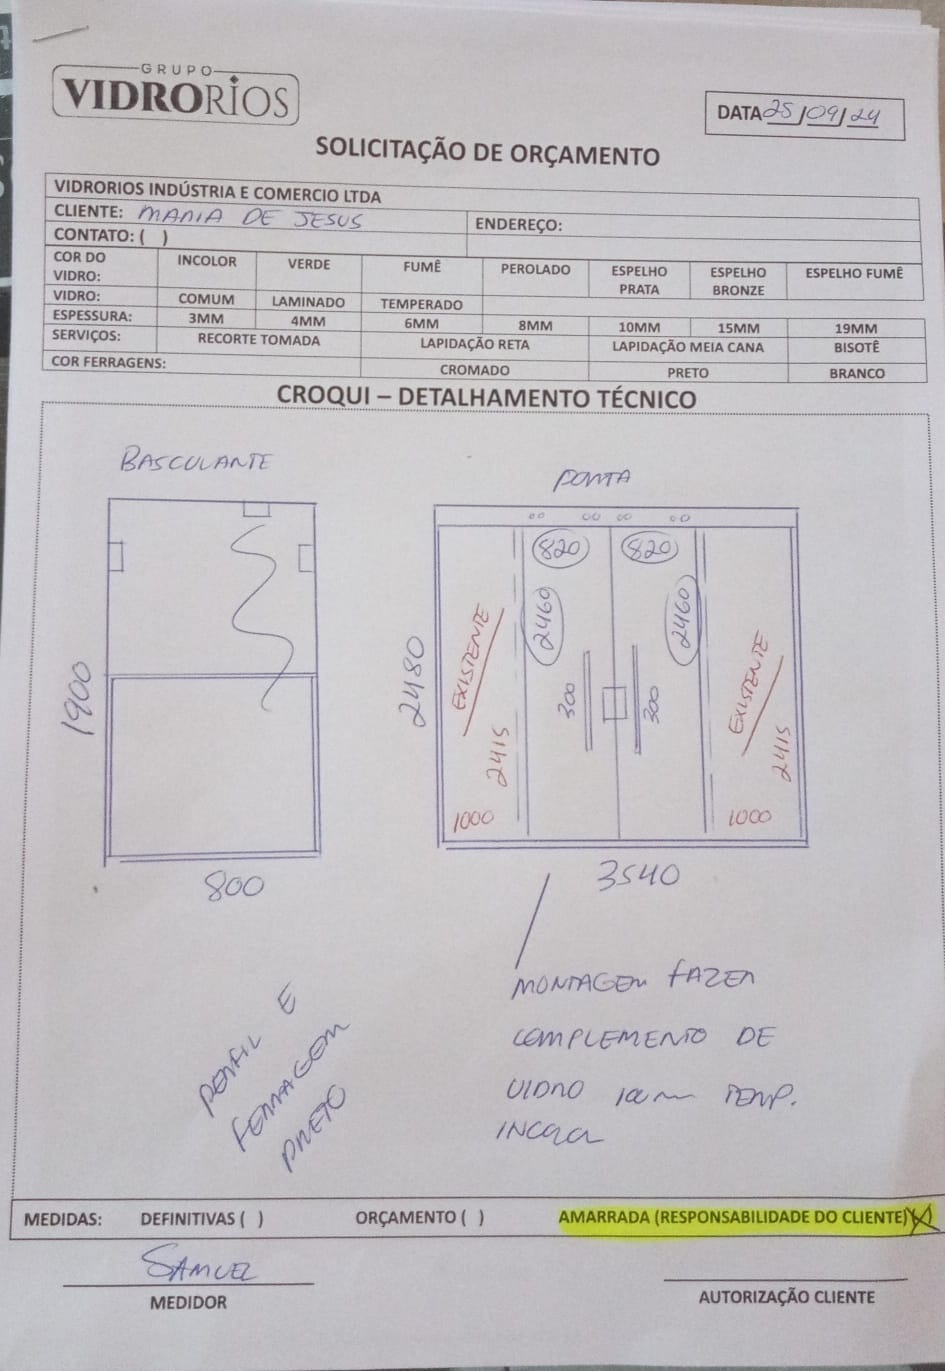 GRUPO
VIDRORIOS
DATA 25/09/24
SOLICITAÇÃO DE ORÇAMENTO
VIDRORIOS INDÚSTRIA E COMERCIO LTDA
CLIENTE: MARIA DE JESUS
ENDEREÇO:
CONTATO: ( )
COR DO VIDRO: INCOLOR VERDE FUMÊ PEROLADO ESPELHO PRATA ESPELHO BRONZE ESPELHO FUMÊ
VIDRO: COMUM LAMINADO TEMPERADO
ESPESSURA: 3MM 4MM 6MM 8MM 10MM 15MM 19MM
SERVIÇOS: RECORTE TOMADA LAPIDAÇÃO RETA LAPIDAÇÃO MEIA CANA BISOTÊ
COR FERRAGENS: CROMADO PRETO BRANCO
CROQUI – DETALHAMENTO TÉCNICO
BASCULANTE
1900
800
PORTA
820 820
2460 2460
2480
EXISTENTE
2415
1000
300 300
EXISTENTE
2415
1000
3540
MONTAGEM FAZER
COMPLEMENTO DE
VIDRO 10mm TEMP.
INCOLOR
PERFIL E
FERRAGEM
PRETO
MEDIDAS: DEFINITIVAS ( ) ORÇAMENTO ( ) AMARRADA (RESPONSABILIDADE DO CLIENTE) (X)
SAMUEL
MEDIDOR
AUTORIZAÇÃO CLIENTE